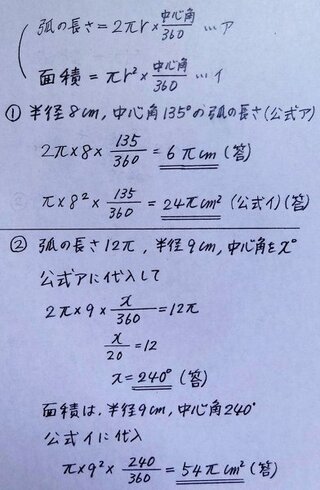 弧の長さ=2πr×中心角/360 …ア
面積=πr²×中心角/360 …イ
① 半径8cm,中心角135°の弧の長さ(公式ア)
2π×8×135/360=6πcm(答)
π×8²×135/360=24πcm²(公式イ)(答)
② 弧の長さ12π,半径9cm,中心角をx°
公式アに代入して
2π×9×x/360=12π
x/20=12
x=240°(答)
面積は,半径9cm,中心角240°
公式イに代入
π×9²×240/360=54πcm²(答)